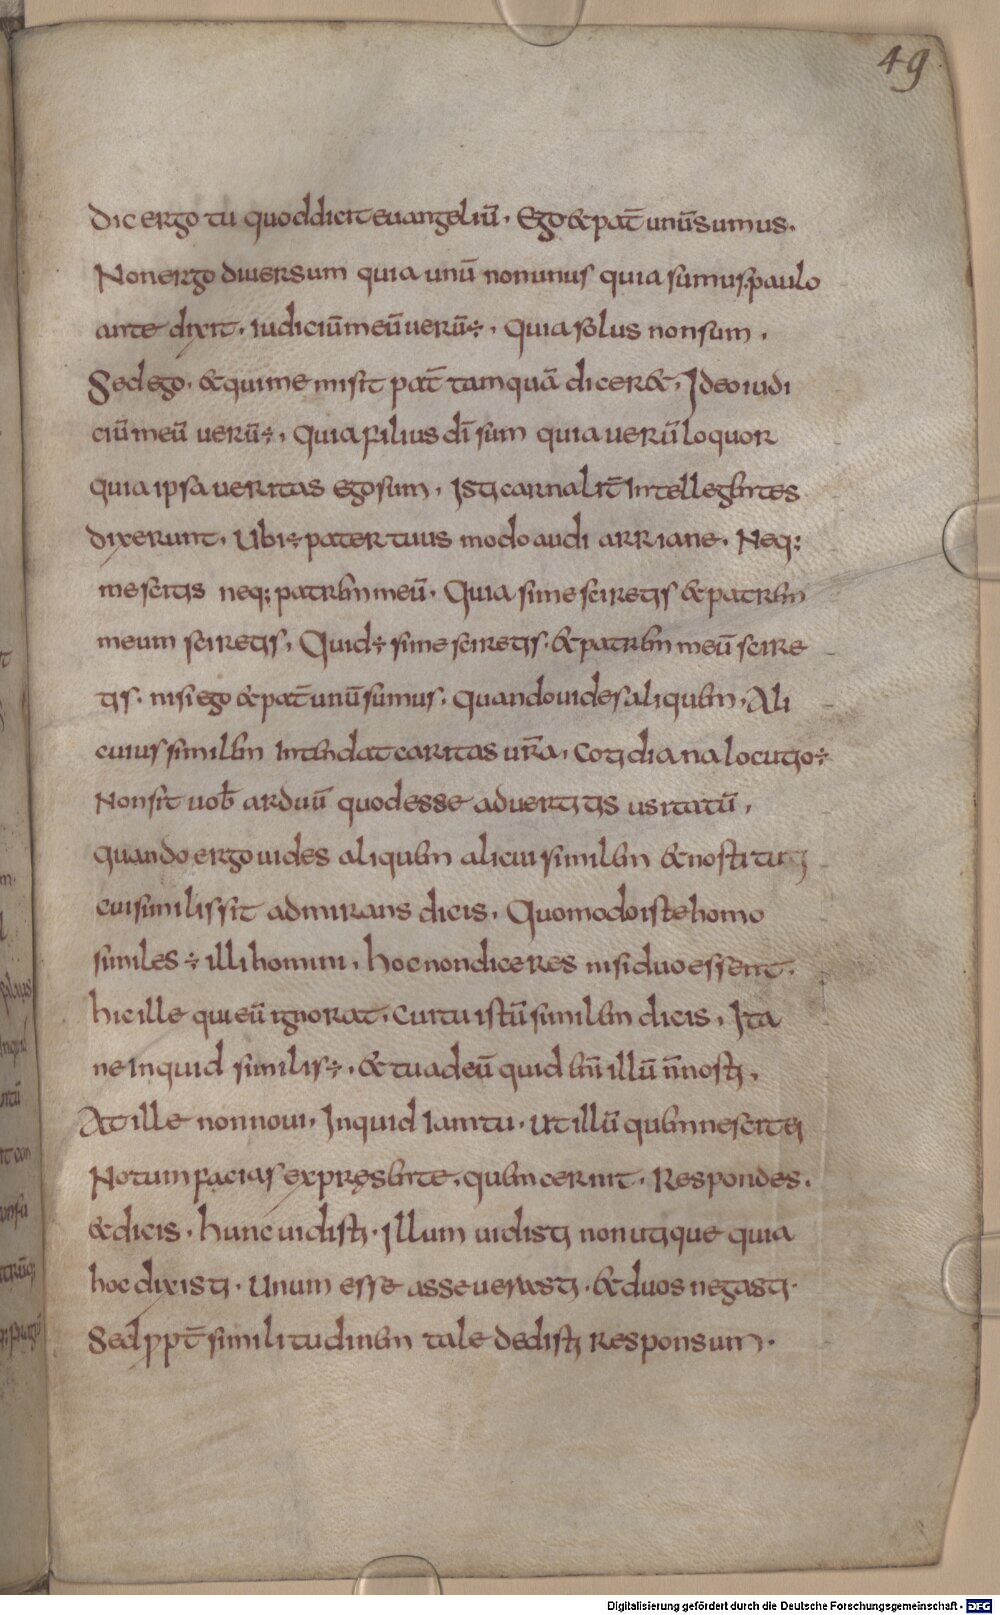 49
Dic ergo tu quod dicit euangeliū. Ego & pat̄ unū sumus.
Non ergo diuersum quia unū non unus quia sumus. paulo
ante dixit. iudiciū meū uerū ÷. Quia solus non sum.
Sed ego. & qui me misit pat̄ tamquā dicer&. Ideo iudi
ciū meū uerū ÷. Quia filius dī sum quia uerū loquor
quia ipsa ueritas ego sum. Isti carnalit̄ intellegentes
dixerunt. Ubi ÷ pater tuus modo audi arriane. Neq;
me scitis neq; patrem meū. Quia si me sciretis & patrem
meum sciretis. Quid ÷ si me sciretis. & patrem meū scire
tis. nisi ego & pat̄ unū sumus. Quando uides aliquem. Ali
cuius similem intendat caritas ur̄a. Cotidiana locutio ÷
Non sit uob̄ arduū quod esse aduertitis usitatū.
quando ergo uides aliquem alicui similem & nosti tu
cui similis sit admirans dicis. Quomodo iste homo
similes ÷ illi homini. hoc non diceres nisi duo essent.
hic ille qui eū ignorat. Cui tu istū similem dicis. Ita
ne inquid similis ÷. & tu ad eū quid em̄ illū n̄ nosti.
At ille non noui. Inquid iam tu. Ut illū quem nescit ei
Notum facias ex pręsente. quem cernit. Respondes.
& dicis. hunc uidisti. Illum uidisti non utique quia
hoc dixisti. Unum esse asseuerasti. & duos negasti.
Sed ppt̄ similitudinem tale dedisti responsum.
Digitalisierung gefördert durch die Deutsche Forschungsgemeinschaft - DFG